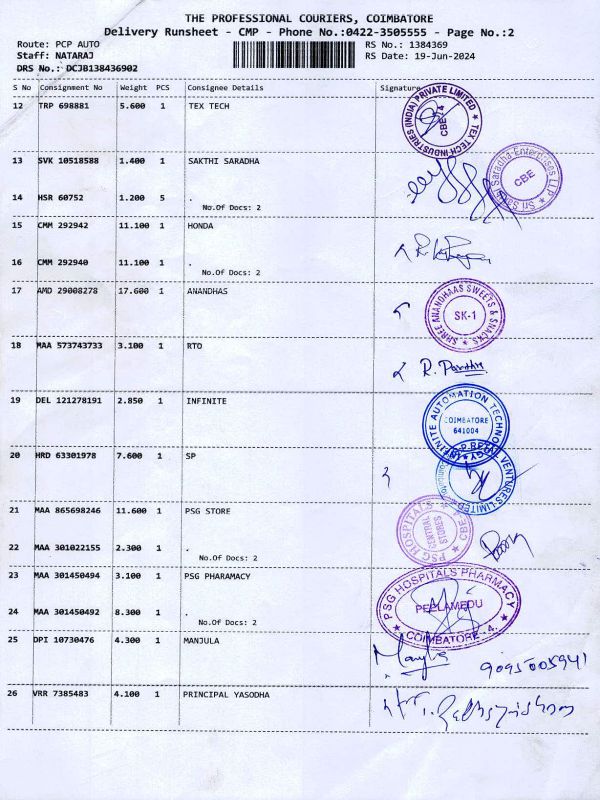 THE PROFESSIONAL COURIERS, COIMBATORE
Delivery Runsheet - CMP - Phone No.:0422-3505555 - Page No.:2
Route: PCP AUTO RS No.: 1384369
Staff: NATARAJ RS Date: 19-Jun-2024
DRS No.: DCJB138436902
S No Consignment No Weight PCS Consignee Details Signature
12 TRP 698881 5.600 1 TEX TECH
TEX TECH INDUSTRIES (INDIA) PRIVATE LIMITED
CBE-14
13 SVK 10518588 1.400 1 SAKTHI SARADHA
Sri Sakthi Saradha Enterprises LLP
CBE
14 HSR 60752 1.200 5 .
No.Of Docs: 2
15 CMM 292942 11.100 1 HONDA
16 CMM 292940 11.100 1 .
No.Of Docs: 2
17 AMD 29008278 17.600 1 ANANDHAS
SHREE ANANDHAAS SWEETS & SNACKS
SK-1
18 MAA 573743733 3.100 1 RTO
19 DEL 121278191 2.850 1 INFINITE
INFINITE AUTOMATION TECHNOLOGY
COIMBATORE
641004
20 HRD 63301978 7.600 1 SP
VENTURES LIMITED
21 MAA 865698246 11.600 1 PSG STORE
PSG HOSPITALS CBE
CENTRAL
STORES
22 MAA 301022155 2.300 1 .
No.Of Docs: 2
23 MAA 301450494 3.100 1 PSG PHARAMACY
PSG HOSPITALS PHARMACY
PEELAMEDU
COIMBATORE - 4.
24 MAA 301450492 8.300 1 .
No.Of Docs: 2
25 DPI 10730476 4.300 1 MANJULA
9095005941
26 VRR 7385483 4.100 1 PRINCIPAL YASODHA